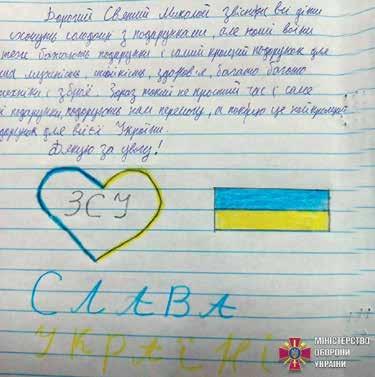 Дорогий Святий Миколай звісно всі діти
солодощі з подарунками, але наші воїни
теж бажають подарунки і самий кращий подарунок для
мужність, стійкість, здоров'я, багато багато
техніки і зброї. Зараз такий не простий час і саме
подарунки подарують нам перемогу, а повірю це найкращий
подарунок для всієї України.
Дякую за увагу!
ЗСУ
СЛАВА
УКРАЇНІ
МІНІСТЕРСТВО
ОБОРОНИ
УКРАЇНИ